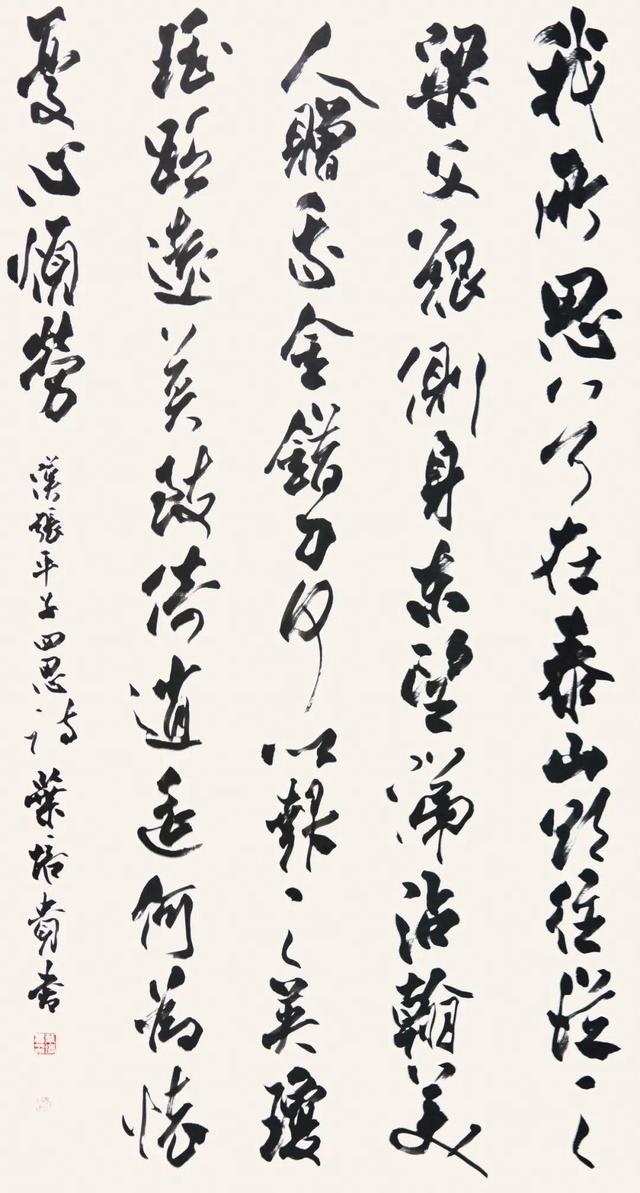 我所思兮在泰山欲往從之
梁父艱側身東望涕沾翰美
人贈我金錯刀何以報之英瓊
瑤路遠莫致倚逍遙何為懷
憂心煩勞 漢張平子四思詩 葉培貴書